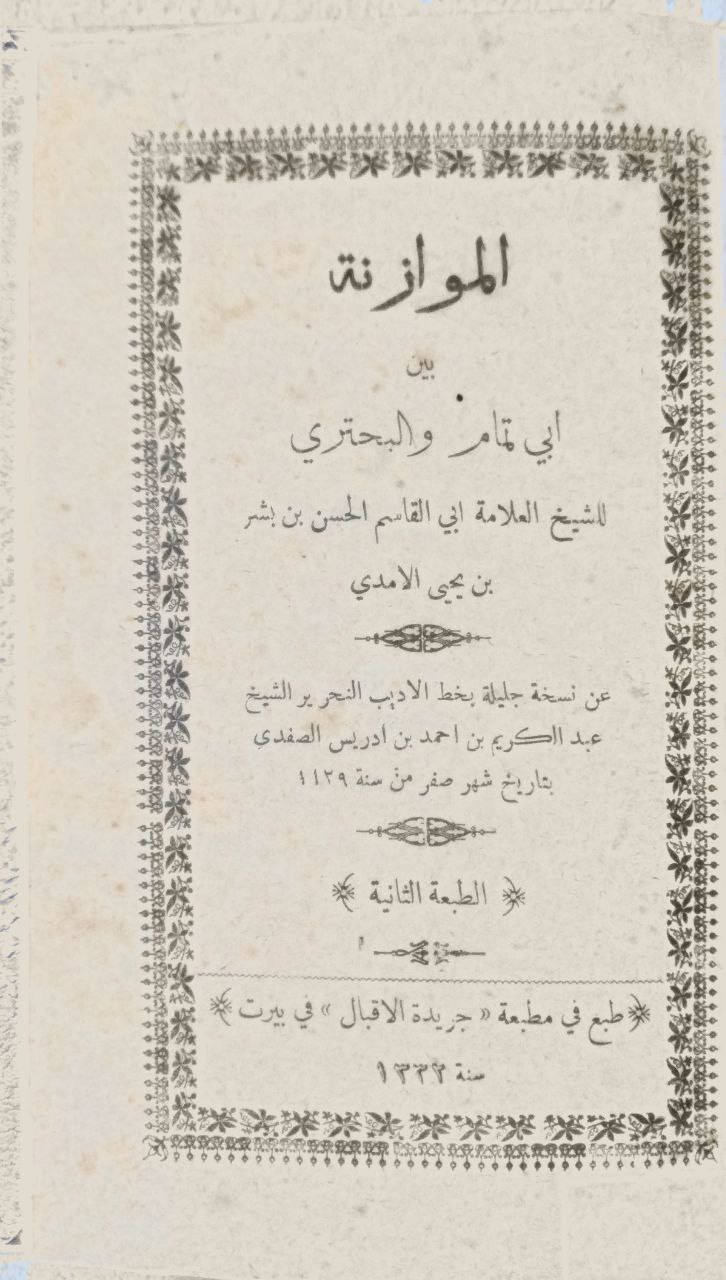 الموازنة
بين
ابي تمام والبحتري
للشيخ العلامة ابي القاسم الحسن بن بشر
بن يحيى الامدي
عن نسخة جليلة بخط الاديب النحرير الشيخ
عبد الكريم بن احمد بن ادريس الصفدي
بتاريخ شهر صفر من سنة ١١٢٩
الطبعة الثانية
طبع في مطبعة « جريدة الاقبال » في بيرت
سنة ١٣٣٢